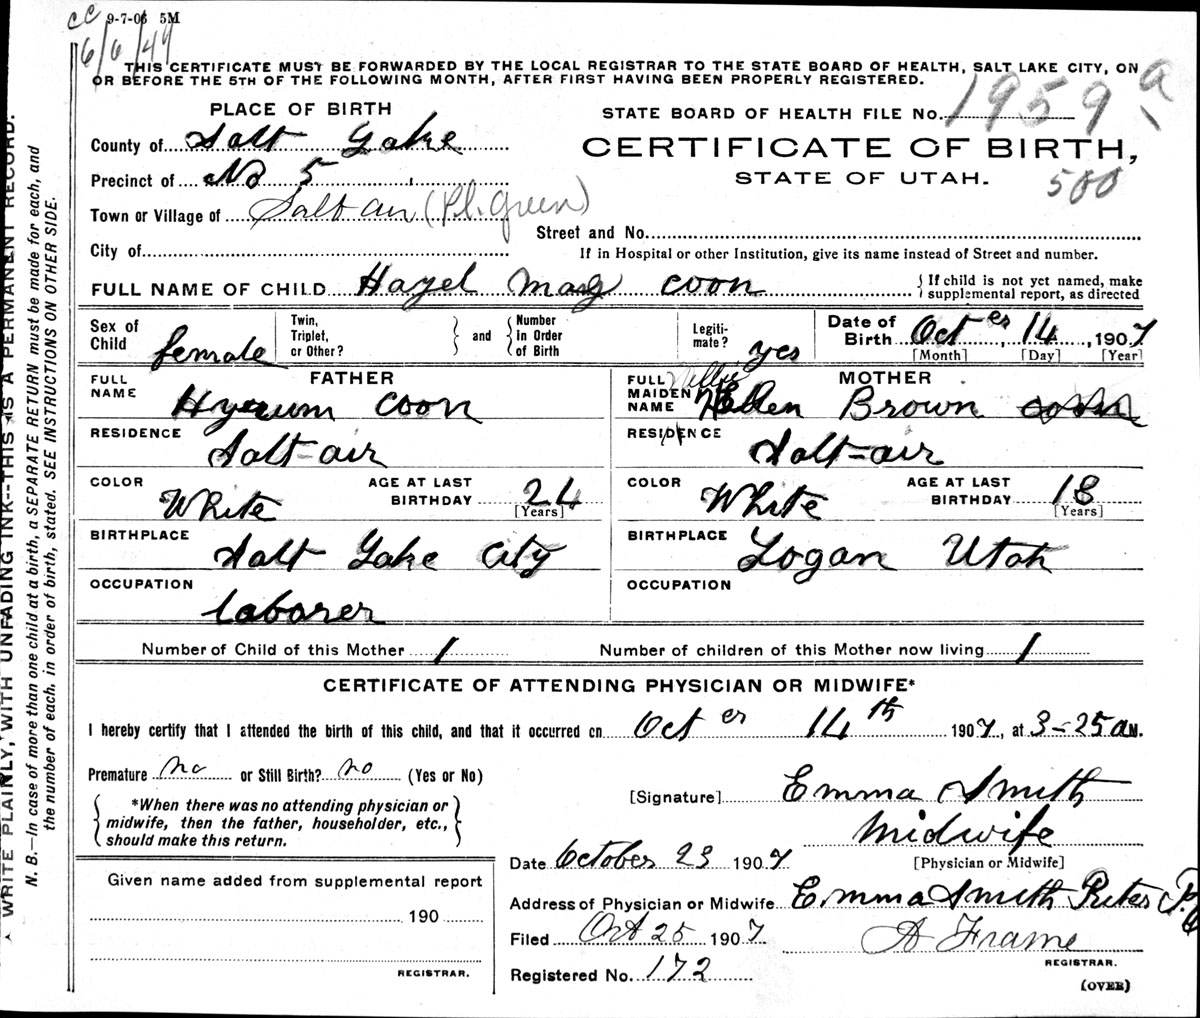 cc 9-7-06 5M
6/6/49
THIS CERTIFICATE MUST BE FORWARDED BY THE LOCAL REGISTRAR TO THE STATE BOARD OF HEALTH, SALT LAKE CITY, ON
OR BEFORE THE 5TH OF THE FOLLOWING MONTH, AFTER FIRST HAVING BEEN PROPERLY REGISTERED.
PLACE OF BIRTH
STATE BOARD OF HEALTH FILE No. 1959 a
County of Salt Lake
CERTIFICATE OF BIRTH,
Precinct of No 5
STATE OF UTAH. 500
Town or Village of Salt air (Pl. Green)
Street and No.
City of
If in Hospital or other Institution, give its name instead of Street and number.
FULL NAME OF CHILD Hazel May Coon
{If child is not yet named, make
supplemental report, as directed
Sex of Child female
Twin, Triplet, or Other? } and { Number in Order of Birth
Legiti-mate? yes
Date of Birth Oct er 14, 1907
[Month] [Day] [Year]
FATHER
FULL NAME Hyrum Coon
RESIDENCE Salt-air
COLOR White AGE AT LAST BIRTHDAY 24 [Years]
BIRTHPLACE Salt Lake City
OCCUPATION laborer
MOTHER
Nellie
FULL MAIDEN NAME Hellen Brown Coon
RESIDENCE Salt-air
COLOR White AGE AT LAST BIRTHDAY 18 [Years]
BIRTHPLACE Logan Utah
OCCUPATION
Number of Child of this Mother 1 Number of children of this Mother now living 1
CERTIFICATE OF ATTENDING PHYSICIAN OR MIDWIFE*
I hereby certify that I attended the birth of this child, and that it occurred on Oct er 14th 1907, at 3-25 a M.
Premature no or Still Birth? no (Yes or No)
{*When there was no attending physician or
midwife, then the father, householder, etc.,
should make this return.}
[Signature] Emma Smith
Midwife
[Physician or Midwife]
Date October 23 1907
Given name added from supplemental report
190
REGISTRAR.
Address of Physician or Midwife Emma Smith
Filed Oct 25 1907 A Frame
REGISTRAR.
Registered No. 172
(OVER)
WRITE PLAINLY, WITH UNFADING INK--THIS IS A PERMANENT RECORD.
N. B.—In case of more than one child at a birth, a SEPARATE RETURN must be made for each, and
the number of each, in order of birth, stated. SEE INSTRUCTIONS ON OTHER SIDE.